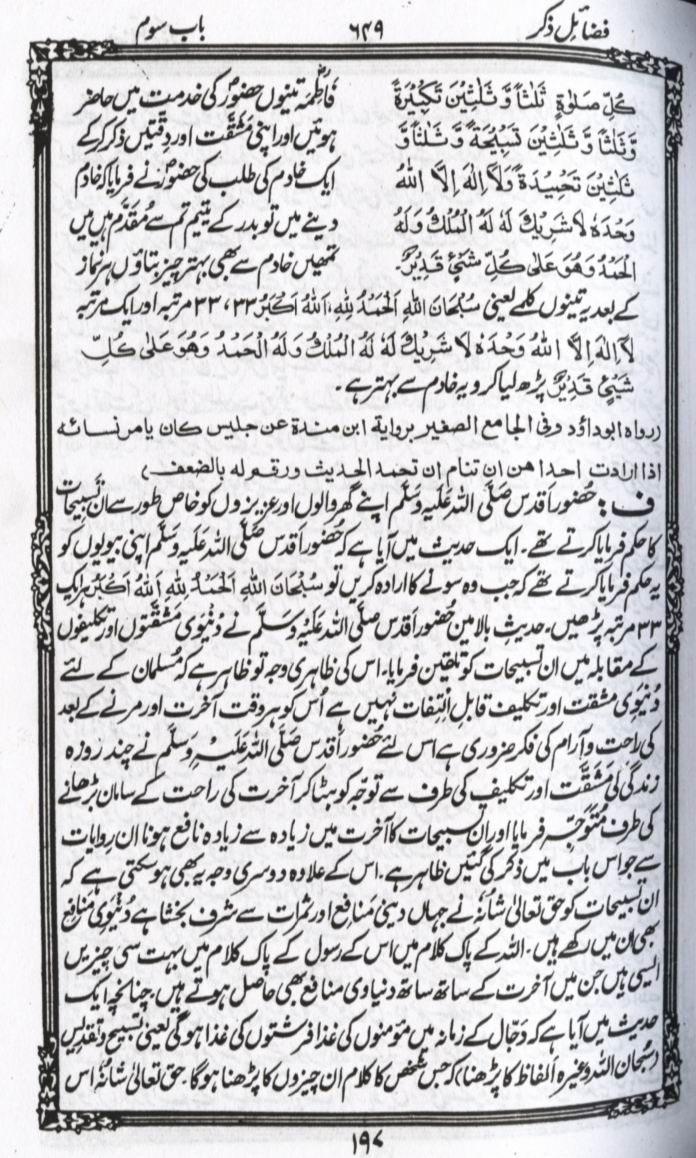 فضائل ذکر ۶۴۹ باب سوم
كُلِّ صَلٰوةٍ ثَلٰثًا وَّ ثَلٰثِيْنَ تَكْبِيْرَةً
وَّثَلٰثًا وَّ ثَلٰثِيْنَ تَسْبِيْحَةً وَّ ثَلٰثًا وَّ
ثَلٰثِيْنَ تَحْمِيْدَةً وَلَاۤ اِلٰهَ اِلَّا اللّٰهُ
وَحْدَهٗ لَا شَرِيْكَ لَهٗ لَهُ الْمُلْكُ وَلَهُ
الْحَمْدُ وَهُوَ عَلٰى كُلِّ شَيْءٍ قَدِيْرٌ
فاطمہؓ تینوں حضورؐ کی خدمت میں حاضر
ہوئیں اور اپنی مُشقَّت اور دِقّتیں ذکر کر کے
ایک خادم کی طلب کی حضورؐ نے فرمایا کہ خادم
دینے میں تو بدر کے یتیم تم سے مُقدّم ہیں میں
تمھیں خادم سے بھی بہتر چیز بتاؤں ہر نماز
کے بعد یہ تینوں کلمے یعنی سُبْحَانَ اللهِ اَلْحَمْدُ لِلّٰهِ، اَللّٰهُ اَكْبَرُ ۳۳، ۳۳ مرتبہ اور ایک مرتبہ
لَاۤ اِلٰهَ اِلَّا اللّٰهُ وَحْدَهٗ لَا شَرِيْكَ لَهٗ لَهُ الْمُلْكُ وَلَهُ الْحَمْدُ وَهُوَ عَلٰى كُلِّ
شَيْءٍ قَدِيْرٌ پڑھ لیا کرو یہ خادم سے بہتر ہے۔
(رواه ابوداؤد وفى الجامع الصغير برواية ابن مندة عن جليس كان يامر نسائه
اذا ارادت احدا هن ان تنام ان تحمد الحديث ورقم له بالضعف)
ف: حضورِ اَقدَس صَلَّی اللہ عَلَیْہِ وسَلَّم اپنے گھر والوں اور عزیزوں کو خاص طور سے ان تَسبیحات
کا حکم فرمایا کرتے تھے۔ ایک حدیث میں آیا ہے کہ حُضورِ اَقدَس صَلَّی اللہ عَلَیْہِ وسَلَّم اپنی بیویوں کو
یہ حکم فرمایا کرتے تھے کہ جب وہ سونے کا ارادہ کریں تو سُبْحَانَ اللهِ اَلْحَمْدُ لِلّٰهِ اَللّٰهُ اَكْبَرُ ہر ایک
۳۳ مرتبہ پڑھیں۔ حدیثِ بالا میں حُضورِ اَقدَس صَلَّی اللہ عَلَیْہِ وسَلَّم نے دُنْیَوی مَشَقّتوں اور تکلیفوں
کے مقابلہ میں ان تسبیحات کو تلقین فرمایا۔ اس کی ظاہری وجہ تو ظاہر ہے کہ مُسلمان کے لئے
دُنْیَوی مشقت اور تکلیف قابلِ اِلتِفات نہیں ہے اُس کو ہر وقت آخرت اور مرنے کے بعد
کی راحت و آرام کی فکر ضروری ہے اس لئے حضورِ اَقدَس صَلَّی اللہ عَلَیْہِ وسَلَّم نے چند روزہ
زندگی کی مَشَقَّت اور تکلیف کی طرف سے توجہ کو ہٹا کر آخرت کی راحت کے سامان بڑھانے
کی طرف مُتَوَجِّہ فرمایا اور ان تسبیحات کا آخرت میں زیادہ سے زیادہ نافع ہونا ان روایات
سے جو اس باب میں ذکر کی گئیں ظاہر ہے۔ اس کے علاوہ دوسری وجہ یہ بھی ہو سکتی ہے کہ
ان تسبیحات کو حق تعالیٰ شانُہٗ نے جہاں دینی مَنافِع اور ثمرات سے شرف بخشا ہے دُنْیَوی مَنافِع
بھی ان میں رکھے ہیں۔ اللہ کے پاک کلام میں اس کے رسول کے پاک کلام میں بہت سی چیزیں
ایسی ہیں جن میں آخرت کے ساتھ ساتھ دنیاوی منافع بھی حاصل ہوتے ہیں۔ چنانچہ ایک
حدیث میں آیا ہے کہ دجّال کے زمانہ میں مؤمنوں کی غذا فرشتوں کی غذا ہوگی یعنی تسبیح و تقدیس
(سُبحان اللہ وغیرہ اَلفاظ کا پڑھنا) کہ جس شخص کا کلام ان چیزوں کا پڑھنا ہوگا۔ حق تعالیٰ شانُہٗ اس
۱۹۷